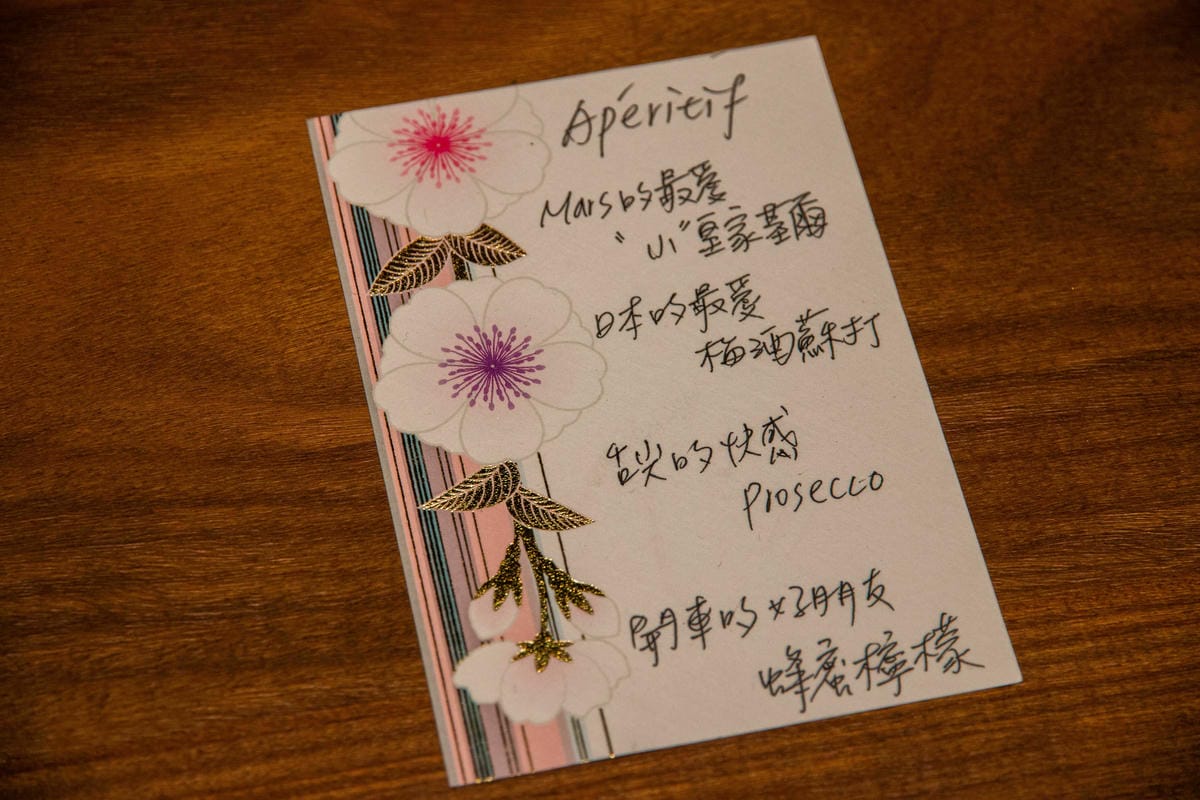 Apéritif
Mars的最愛
"小"皇家基爾
日本的最愛
梅酒蘇打
舌尖的快感
Prosecco
開車的好朋友
蜂蜜檸檬